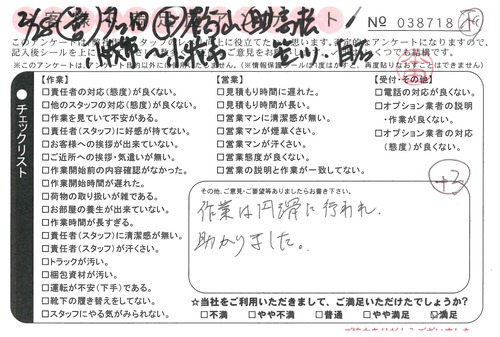 No 038718
このアンケートは
記入後シールを上に
※このアンケートは、
いくつでも結構です。
【作業】
□責任者の対応(態度)が良くない。
□他のスタッフの対応(態度)が良くない。
□作業を見ていて不安がある。
□責任者(スタッフ)に好感が持てない。
□お客様への挨拶が出来ていない。
□ご近所への挨拶・気遣いが無い。
□作業開始前の内容確認がなかった。
□作業開始時間が遅れた。
□荷物の取り扱いが雑である。
□お部屋の養生が出来ていない。
□作業時間が長すぎる。
□責任者(スタッフ)に清潔感が無い。
□責任者(スタッフ)が汗くさい。
□トラックが汚い。
□梱包資材が汚い。
□運転が不安(下手)である。
□靴下の履き替えをしてない。
□スタッフにやる気がみられない。
【営業】
□見積もり時間に遅れた。
□見積もり時間が長い。
□営業マンに清潔感が無い。
□営業マンが煙草くさい。
□営業マンが汗くさい。
□営業態度が良くない。
□営業の説明と作業が一致してない。
【受付・その他】
□電話の対応が良くない。
□オプション業者の説明
・作業が良くない。
□オプション業者の対応
(態度)が良くない。
チェックリスト
+3
その他、ご意見・ご要望等ありましたらお書き下さい。
作業は円滑に行われ、
助かりました。
☆当社をご利用いただきまして、ご満足いただけたでしょうか?
□不満 □やや不満 □普通 □やや満足 ☑満足